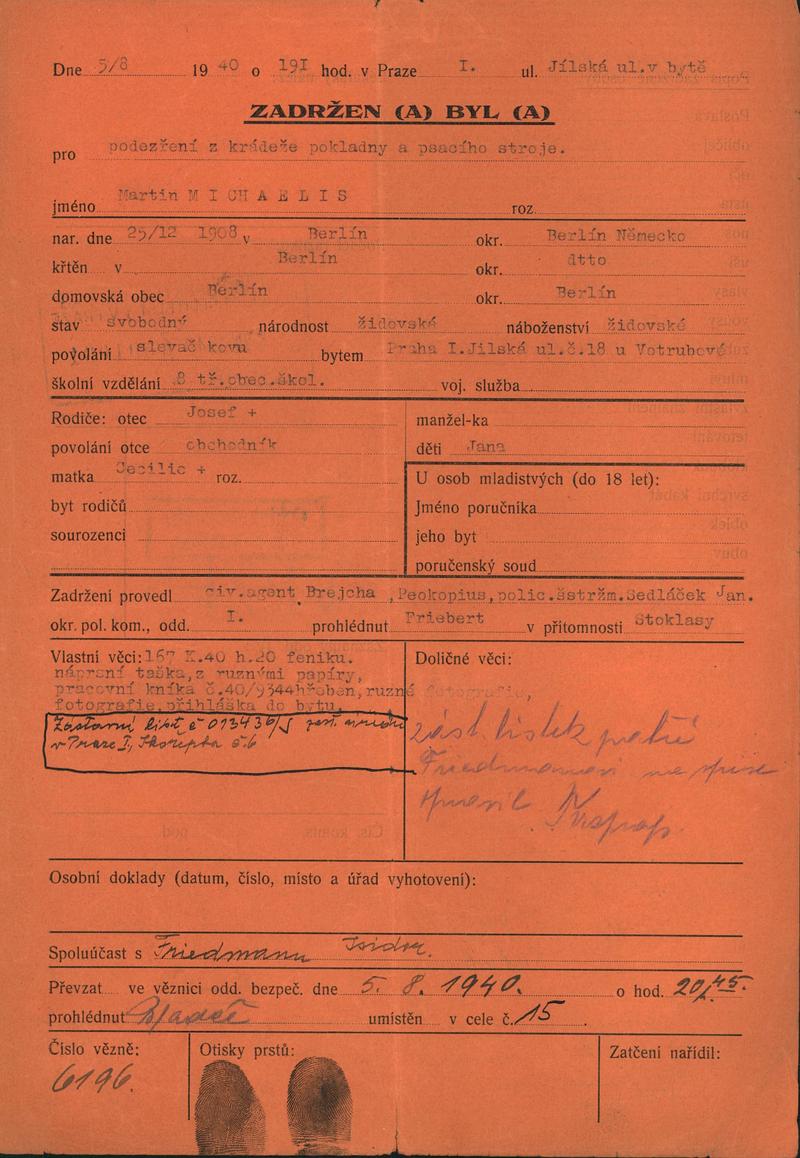 Dne 5/8 19 40 o 19I hod. v Praze I. ul. Jílská ul.v bytě
ZADRŽEN (A) BYL (A)
pro podezření z krádeže pokladny a psacího stroje.
jméno Martin M I CH A E L I S roz.
nar. dne 25/12 1908 v Berlín okr. Berlín Německo
křtěn v Berlín okr. dtto
domovská obec Berlín okr. Berlín
stav svobodný národnost židovská náboženství židovské
povolání slevač kovu bytem Praha I.Jilská ul.č.18 u Votrubové
školní vzdělání 8 tř.obec.škol. voj. služba
Rodiče: otec Josef + manžel-ka
povolání otce obchodník děti Jana
matka Cecilie + roz. U osob mladistvých (do 18 let):
byt rodičů Jméno poručníka
sourozenci jeho byt
poručenský soud
Zadržení provedl civ.agent Brejcha ,Peokopius,polic.šstržm.Sedláček Jan.
okr. pol. kom., odd. I. prohlédnut Friebert v přítomnosti Stoklasy
Vlastní věci:167 K.40 h.20 feniku. Doličné věci:
náprsní taška,z ruznými papíry,
pracovní kníka č.40/9344hřeben,ruzné fotografie,
fotografie,přihláška do bytu.
Zástavní list č 013436/J
v Praze I, Skořepka č.6
zást. lístek patří
Friedmannovi
Osobní doklady (datum, číslo, místo a úřad vyhotovení):
Spoluúčast s Friedmann Isidor.
Převzat ve věznici odd. bezpeč. dne 5. 8. 1940. o hod. 20,45.
prohlédnut umístěn v cele č. 15.
Číslo vězně: Otisky prstů: Zatčení nařídil:
6196.